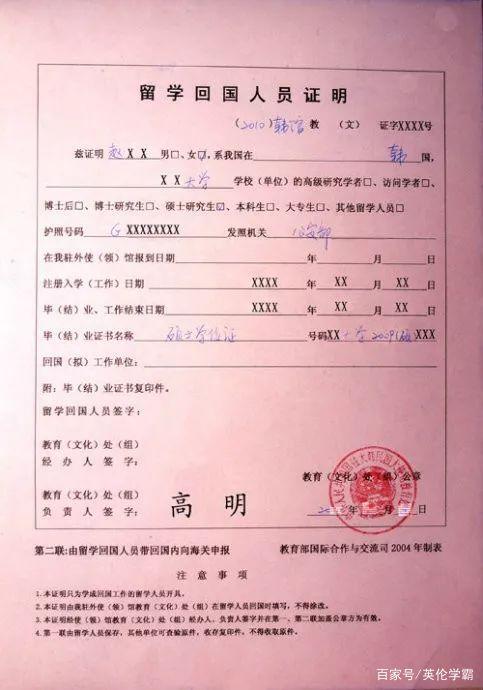 留学回国人员证明
(2010)韩馆教 (文) 证字XXXX号
兹证明 赵XX 男□、女☑, 系我国在 韩 国,
XX大学 学校(单位)的高级研究学者□、访问学者□、
博士后□、博士研究生□、硕士研究生☑、本科生□、大专生□、其他留学人员□
护照号码 G XXXXXXXX 发照机关 公安部
在我驻外使(领)馆报到日期 年 月 日
注册入学(工作)日期 XXXX 年 XX 月 XX 日
毕(结)业、工作结束日期 XXXX 年 XX 月 XX 日
毕(结)业证书名称 硕士学位证 号码XX大学2009(硕)XXX
回国(拟)工作单位:
附:毕(结)业证书复印件。
留学回国人员签字:
教育(文化)处(组)
经办人签字:
教育(文化)处(组)公章
教育(文化)处(组)
负责人签字: 高明
年 月 日
第二联:由留学回国人员带回国内向海关申报 教育部国际合作与交流司2004年制表
注意事项
1.本证明只为学成回国工作的留学人员开具。
2.本证明由我驻外使(领)馆教育(文化)处(组)在留学人员回国时填写,不得涂改。
3.本证明经使(领)馆教育(文化)处(组)经办人、负责人签字并在第一、第二联加盖公章方为有效。
4.第一联由留学人员保存,其他单位可查验原件,收存复印件,不得收取原件。
百家号/英伦学霸